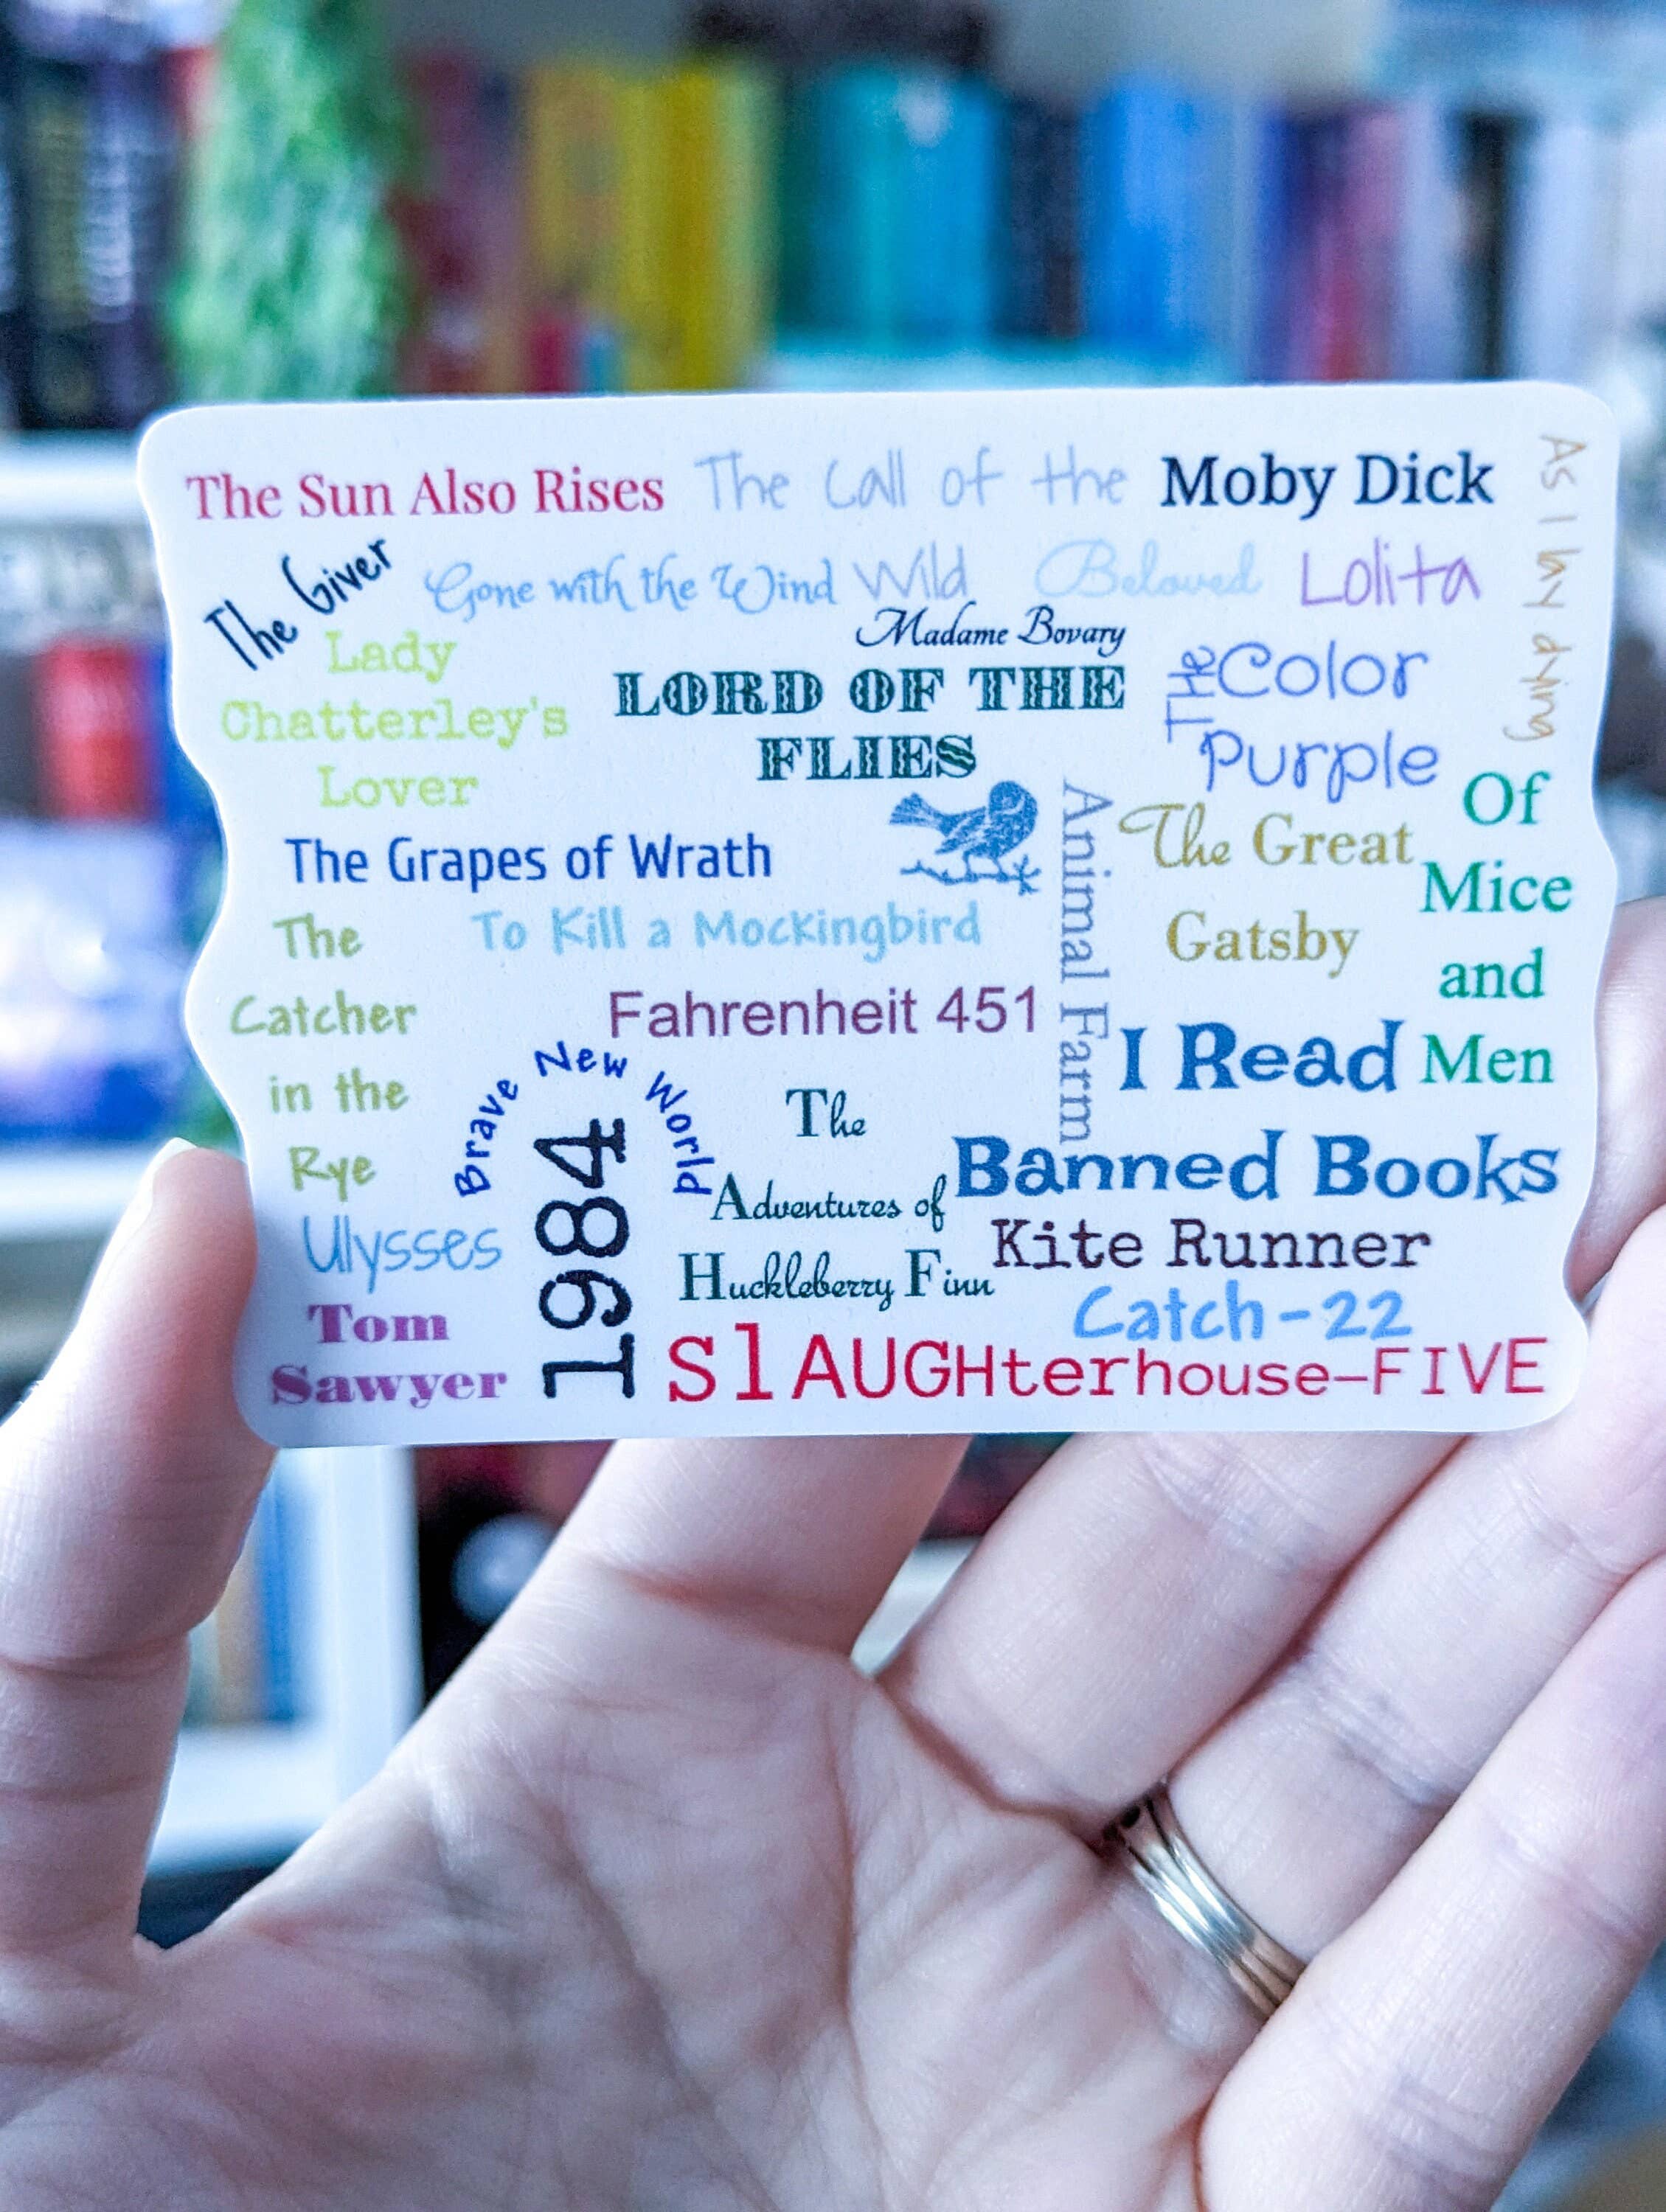 The Sun Also Rises
The Call of the
Wild
Moby Dick
As I lay dying
The Giver
Gone with the Wind
Beloved
Lolita
Madame Bovary
Lady
Chatterley's
Lover
LORD OF THE
FLIES
The Color
Purple
The Grapes of Wrath
Animal Farm
The Great
Gatsby
Of
Mice
and
Men
To Kill a Mockingbird
The
Catcher
in the
Rye
Fahrenheit 451
I Read
Banned Books
Brave New World
1984
The
Adventures of
Huckleberry Finn
Kite Runner
Ulysses
Catch-22
Tom
Sawyer
SlAUGHterhouse-FIVE